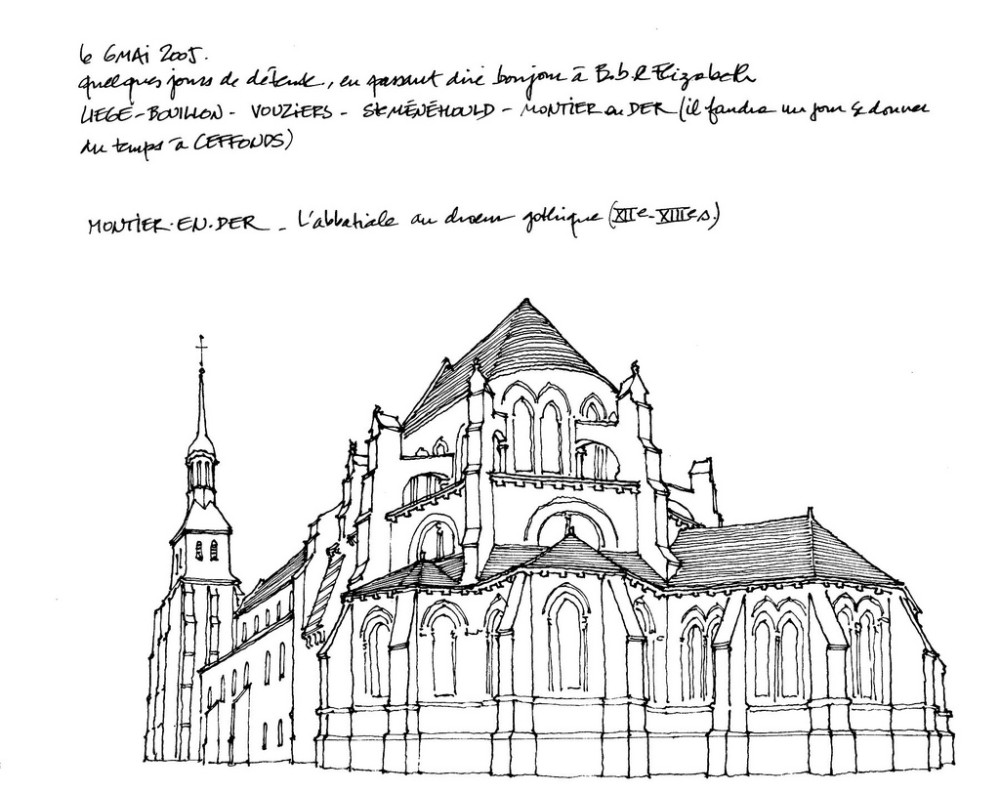 le 6 MAi 2005.
quelques jours de détente, en passant dire bonjour à Bob & Elizabeth
LIEGE - BOUILLON - VOUZIERS - STE MÉNÉHOULD - MONTIER en DER (il faudra un jour se donner
du temps à CEFFONDS)
MONTIER.EN.DER _ L'abbatiale au choeur gothique (XIIe - XIIIe s.)